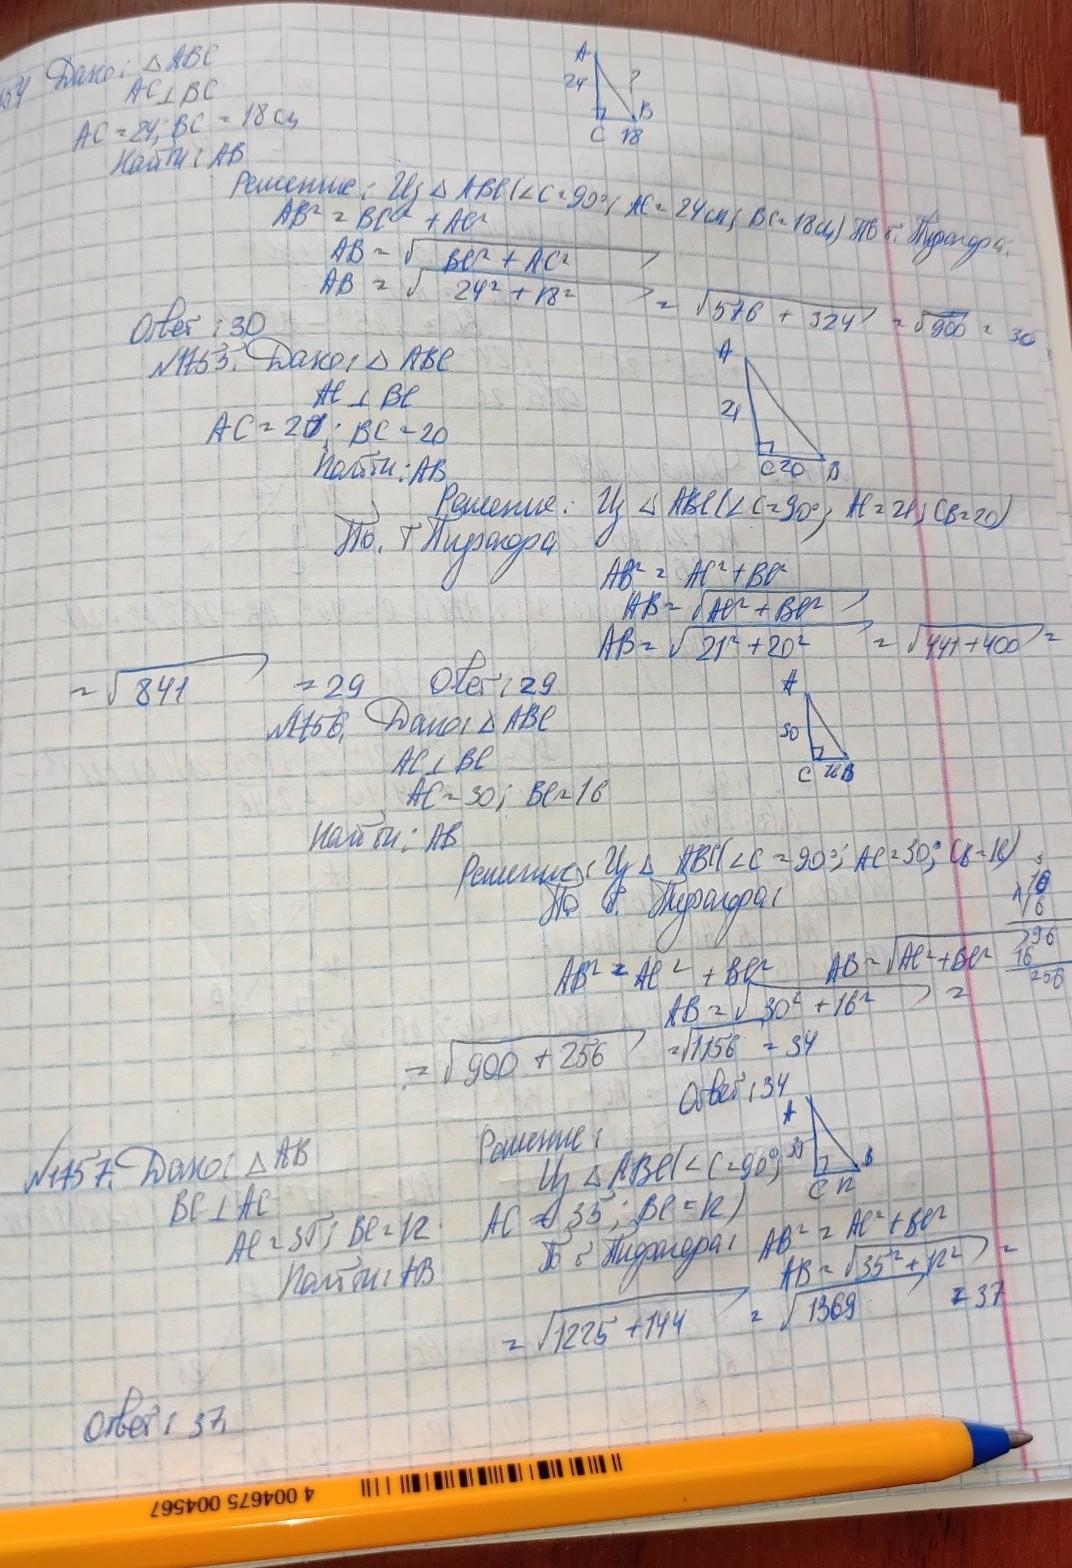 Дано: △ ABC
AC ⊥ BC
AC = 24; BC = 18 см
Найти: AB
A
24
?
B
C 18
Решение: Из △ ABC (∠C=90°; AC=24см; BC=18см) По т. Пифагора:
AB² = BC² + AC²
AB = √BC² + AC²
AB = √24² + 18² = √576 + 324 = √900 = 30
Ответ: 30
№1753. Дано: △ ABC
AC ⊥ BC
AC = 21; BC = 20
Найти: AB
A
21
C 20 B
Решение: Из △ ABC (∠C=90°; AC=21; CB=20)
По. т Пифагора
AB² = AC² + BC²
AB = √AC² + BC²
AB = √21² + 20² = √441 + 400 =
= √841 = 29 Ответ: 29
№1756. Дано: △ ABC
AC ⊥ BC
AC = 30; BC = 16
Найти: AB
A
30
C 16 B
Решение: Из △ ABC (∠C = 90°; AC=30; CB=16)
По т. Пифагора:
16
16
96
16
256
AB² = AC² + BC² AB = √AC² + BC²
AB = √30² + 16² =
= √900 + 256 = √1156 = 34
Ответ: 34
A
35
C 12 B
№1757. Дано: △ AB
BC ⊥ AC
AC = 35; BC = 12
Найти: AB
Решение:
Из △ ABC (∠C=90°;
AC = 35; BC = 12)
По т. Пифагора: AB² = AC² + BC²
AB = √35² + 12² =
= √1225 + 144 = √1369 = 37
Ответ: 37
4 004675 004567